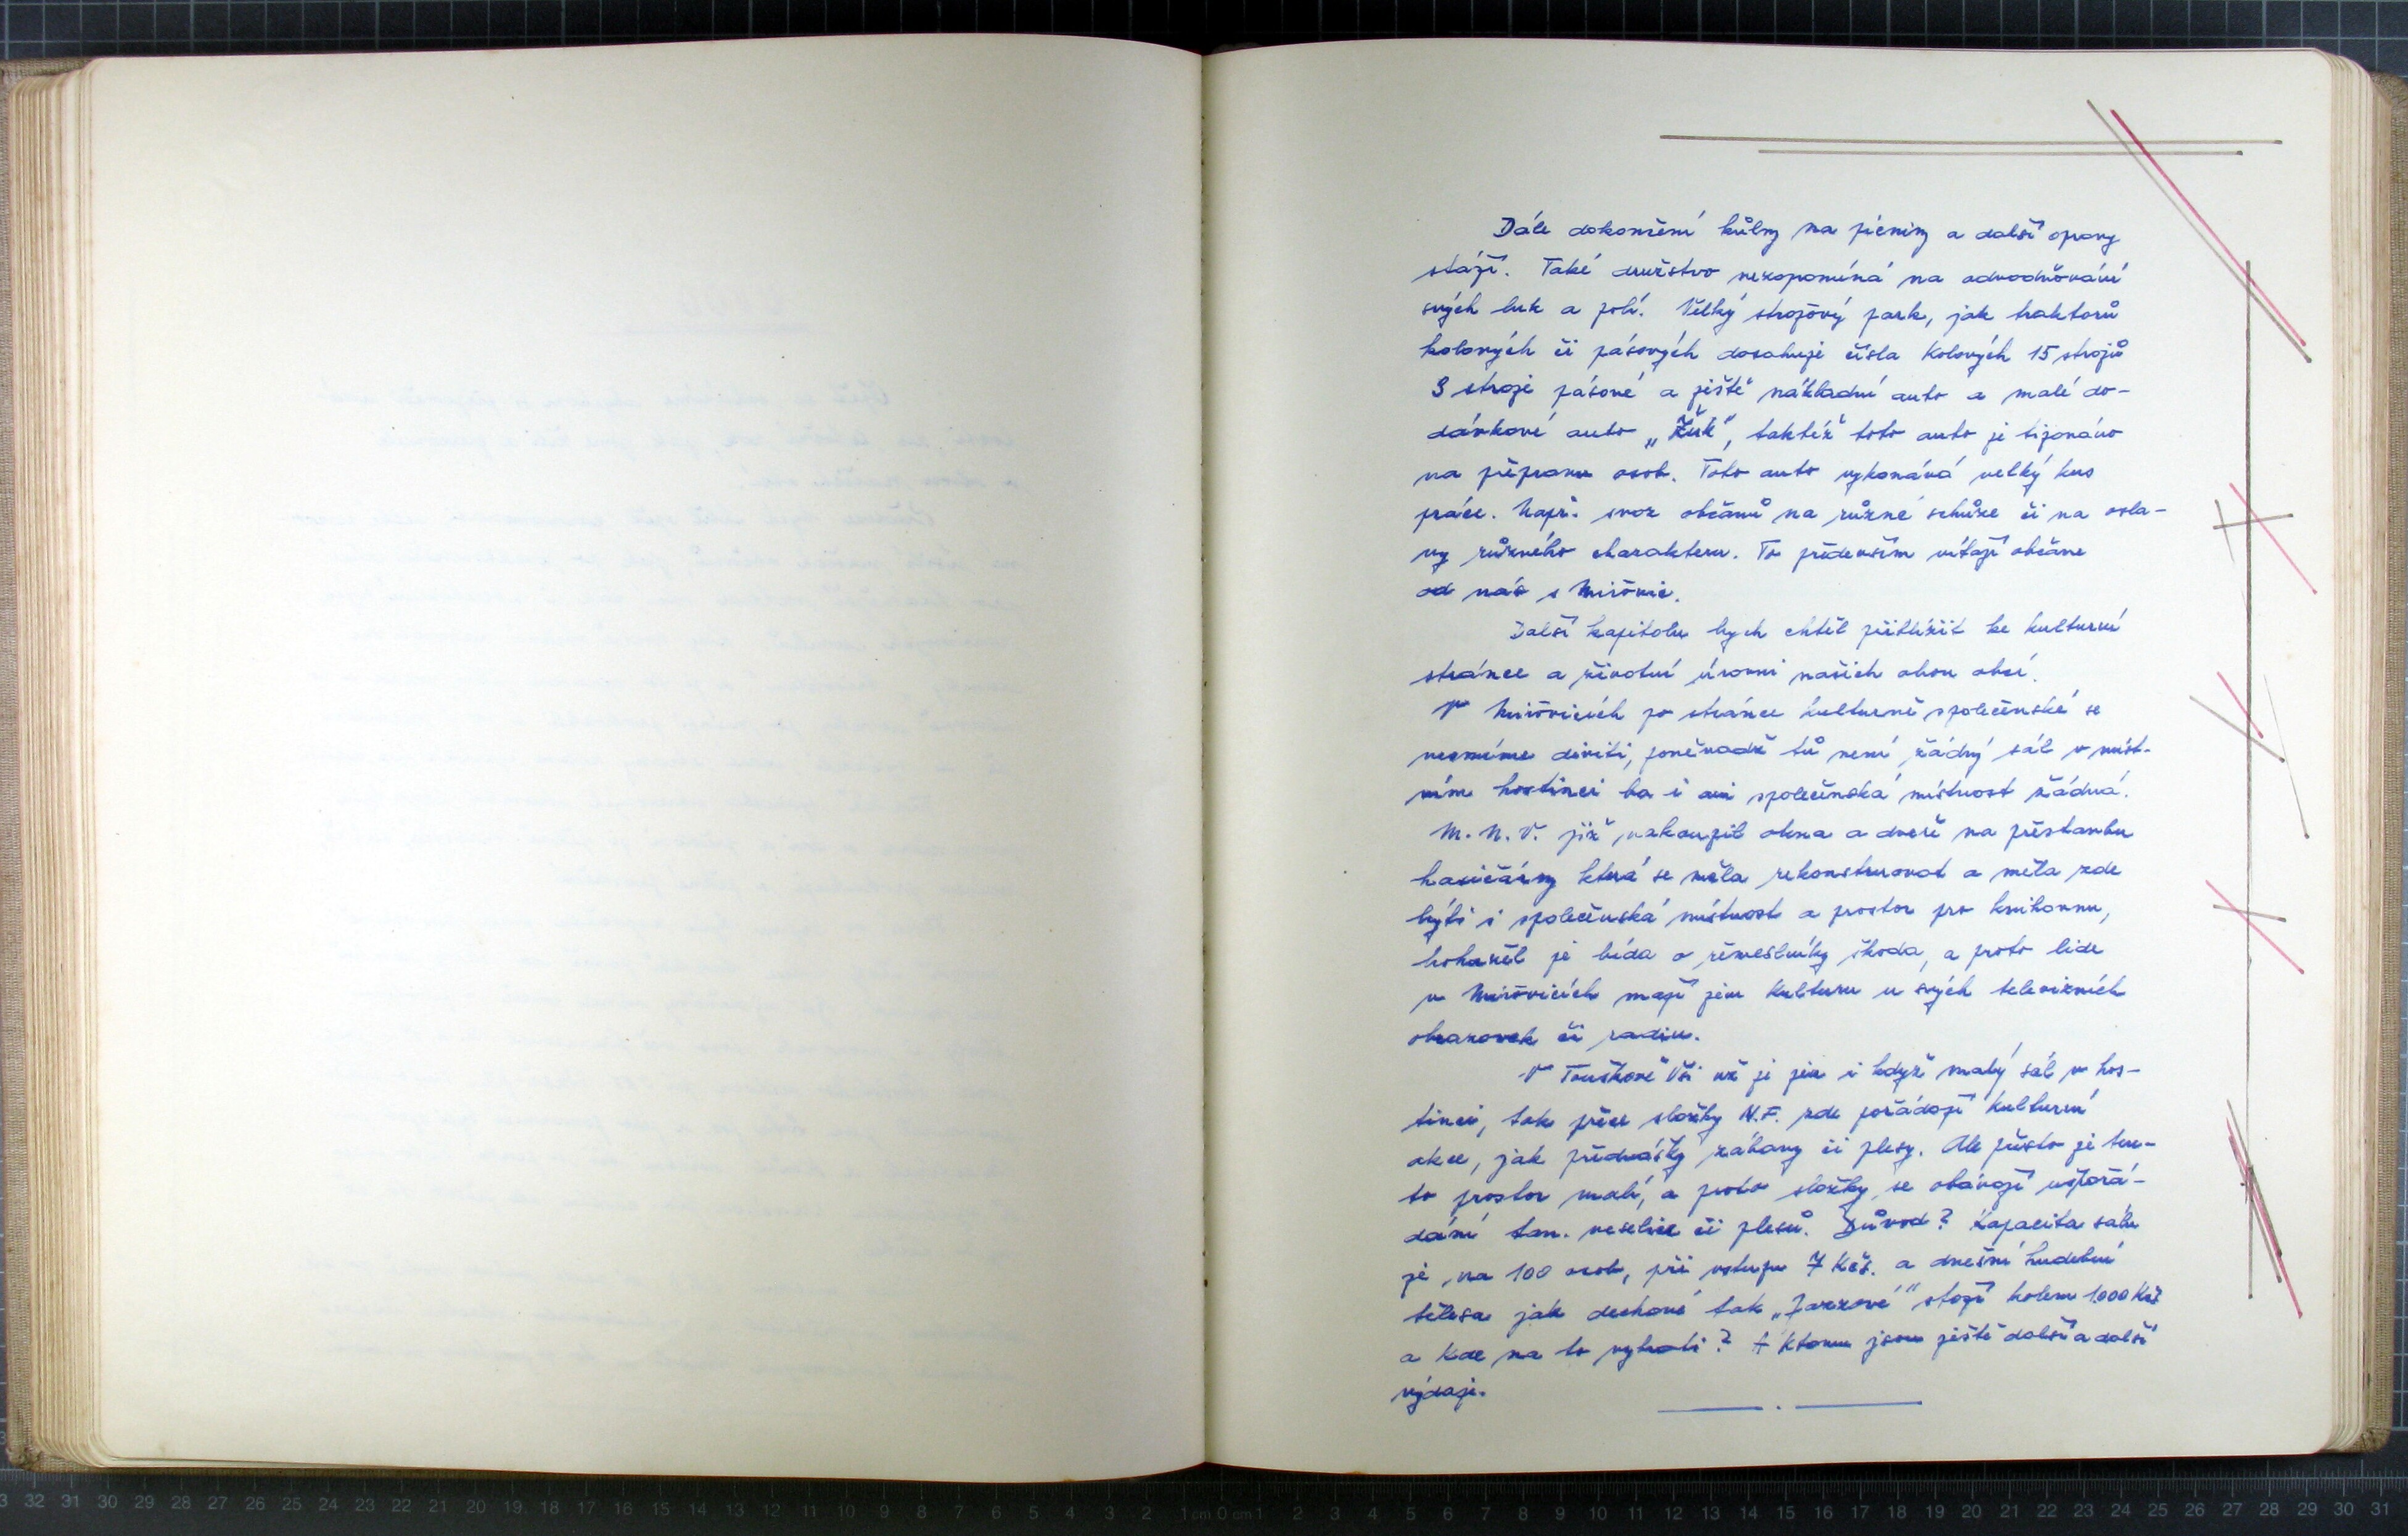 Dále dokončení kůlny na pícniny a další opravy
stájí. Také družstvo nezapomíná na odvodňování
svých luk a polí. Velký strojový park, jak traktorů
kolových či pásových dosahuje čísla kolových 15 strojů
3 stroje pásové a ještě nákladní auto a malé do-
dávkové auto „Žuk", taktéž toto auto je
na přepravu osob. Toto auto vykonává velký kus
práce. Např. svoz občanů na různé schůze či na osla-
vy různého charakteru. To především vítají občane
od nás s Mirovic.
Další kapitolu bych chtěl přiblížit ke kulturní
stránce a životní úrovni našich obou obcí.
V Miřovicích po stránce kulturně společenské se
nesmíme diviti, poněvadž tů není žádný sál v míst-
ním hostinci ba i ani společenská místnost žádná.
M. N. V. již nakoupil okna a dveře na přestavbu
hasičárny která se měla rekonstruovat a měla zde
býti i společenská místnost a prostor pro knihovnu,
bohužel je bída o řemeslníky škoda, a proto lide
v Miřovicích mají jen kulturu u svých televizních
obrazovek či radiu.
V Touškově Vsi už je jen i když malý sál v hos-
tinci, tak přece složky N.F. zde pořádají kulturní
akce, jak přednášky zábavy či plesy. Ale přesto je ten-
to prostor malí, a proto složky se obávají uspořá-
dání tan. veselice či plesů. Důvod? Kapacita sálu
je na 100 osob, při vstupu 7 Kčs. a dnešní hudební
tělesa jak dechové tak „Jazzové" stojí kolem 1.000 Kčs
a kde na to vybrati? + Ktomu jsou ještě další a další
výdaje.